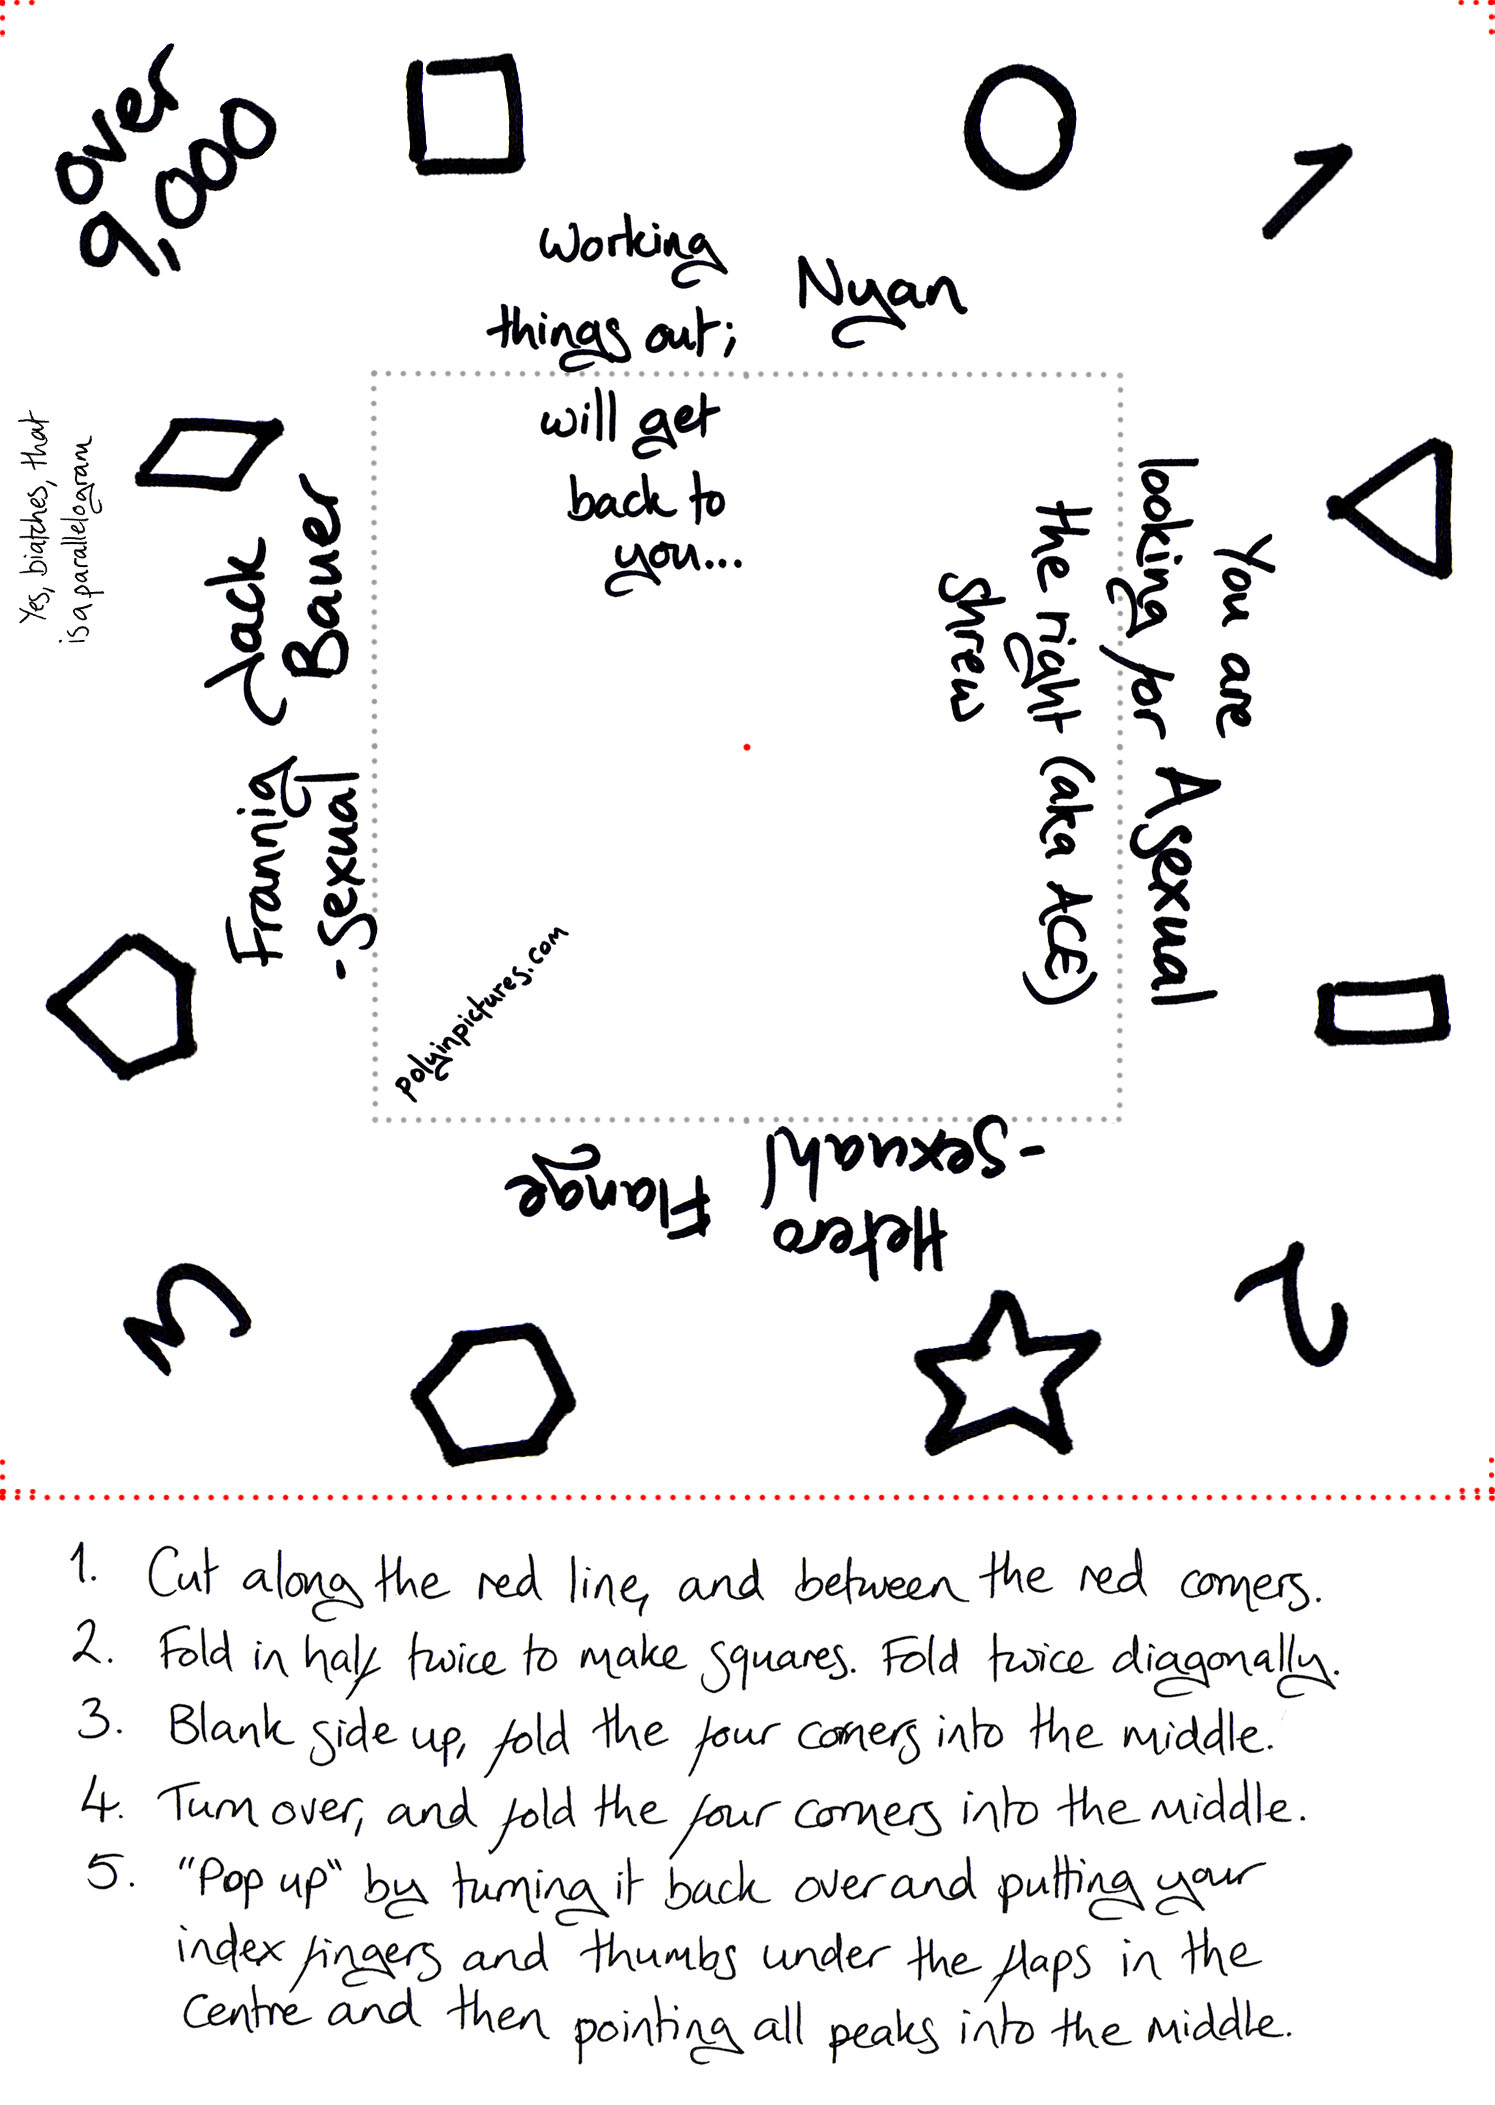 over
9,000
1
Working
things out;
will get
back to
you...
Nyan
You are
looking for
the right
Shrew
Asexual
(aka ACE)
Yes, biatches, that
is a parallelogram
Jack
Bauer
Frannig
-Sexual
polyinpictures.com
Hetero
-Sexuah!
Flange
2
3
1. Cut along the red line, and between the red corners.
2. Fold in half twice to make squares. Fold twice diagonally.
3. Blank side up, fold the four corners into the middle.
4. Turn over, and fold the four corners into the middle.
5. "Pop up" by turning it back over and putting your
index fingers and thumbs under the flaps in the
Centre and then pointing all peaks into the middle.